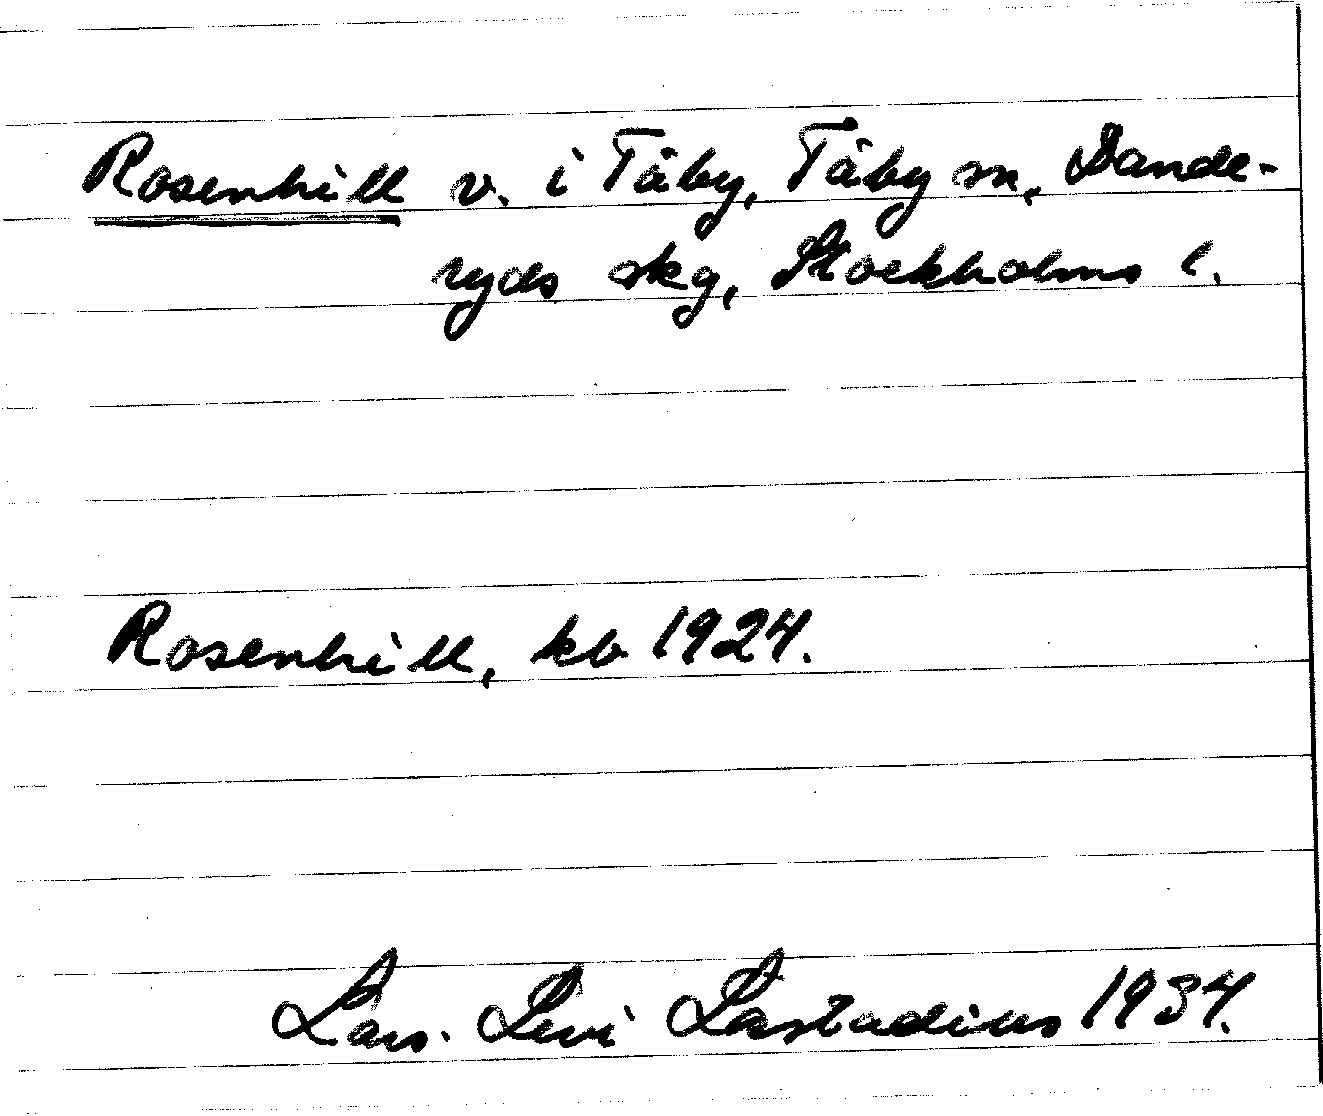 Rosenhill v. i Täby, Täby sn, Dande-
ryds skg, Stockholms l.
Rosenhill, kb 1924.
Lars-Levi Læstadius 1934.